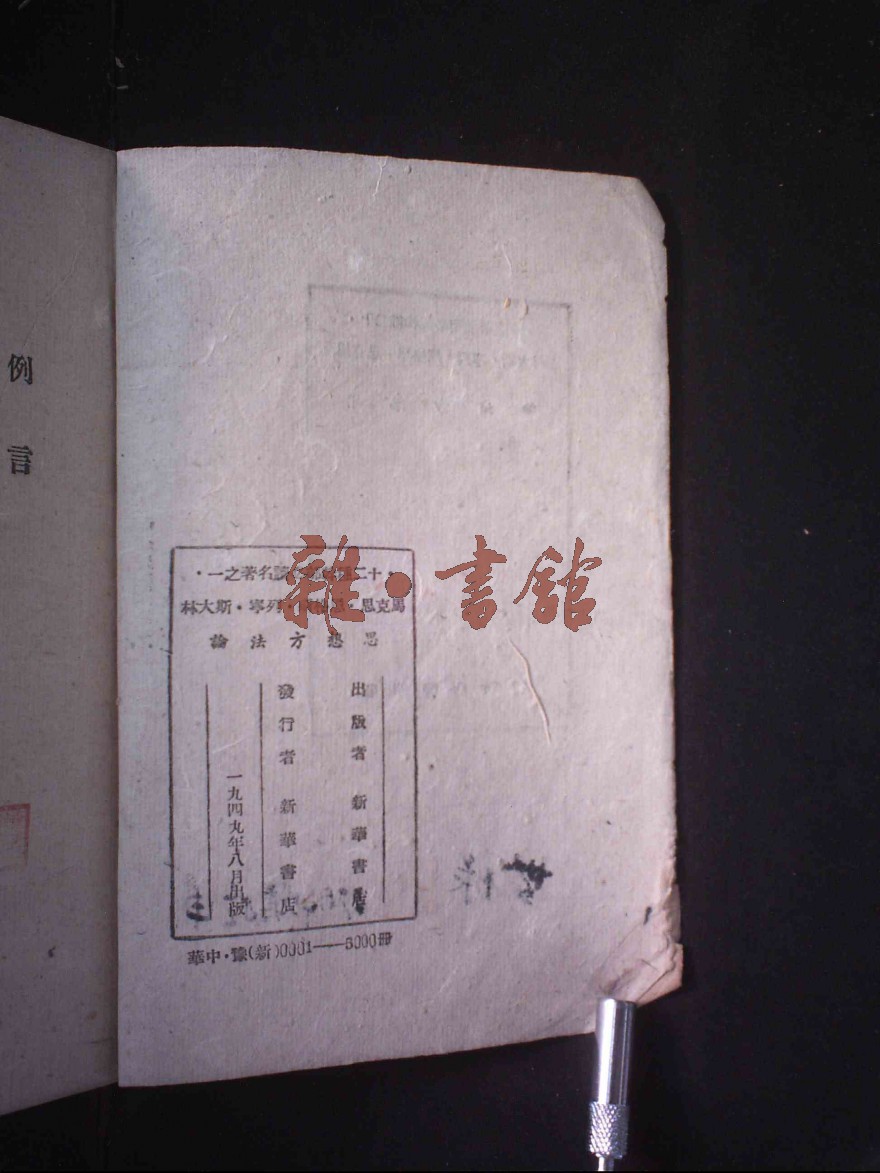 例言
雜·書館
·十二 名著之一·
馬克思· ·列寧·斯大林
思想方法論
出版者 新華書店
發行者 新華書店
一九四九年八月出版
華中·豫(新)0001——5000冊